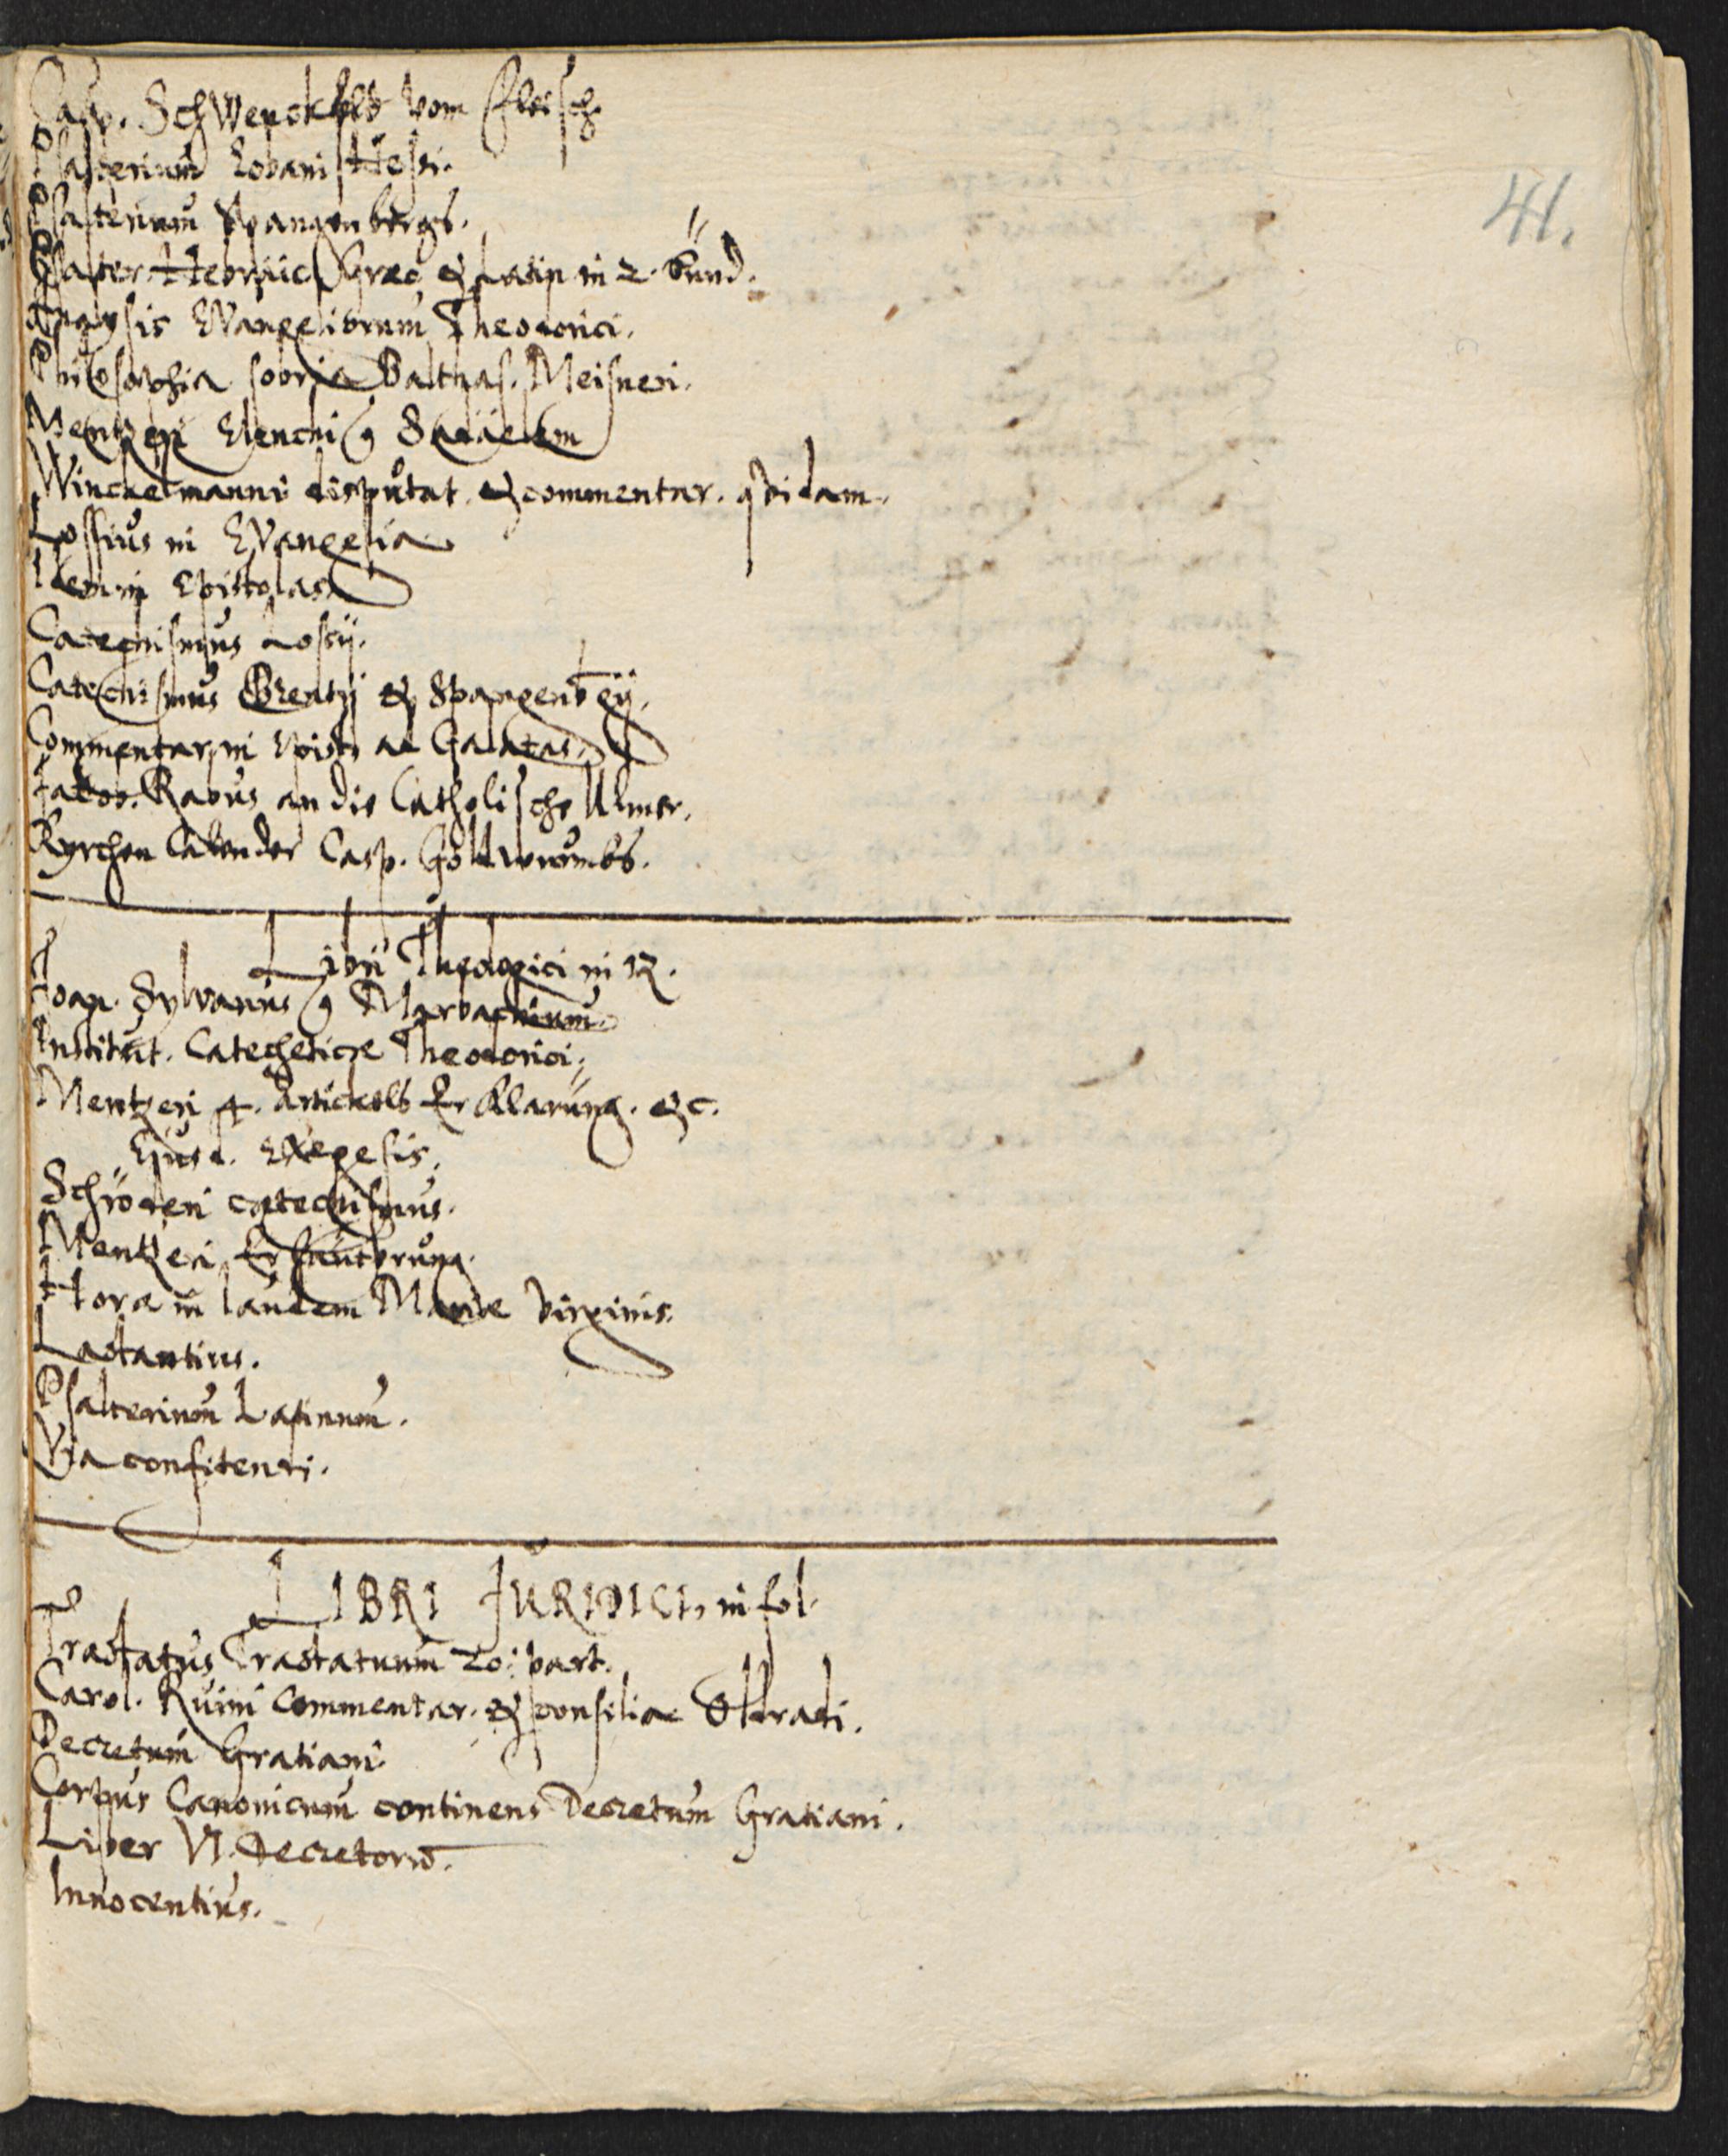 Casp. Schwenckfeld vom Fleisch
41.
Psalterium Eobani Hessi.
Psalterium Spangenbergs.
Psalter. Hebraic. Graec & Latin in 2. bünd.
Analysis Evangeliorum Theodorici.
Philosophia sobria Balthas. Meisneri.
Mentzeri Elenchi Sadaelem
Winckelmanni disputat. & commentar. quidam.
Lossius in Evangelia
Idem in Epistolas
Catechismus Lossij.
Catechismus Brentij & Spangenbergij.
Commentar. in Epist. ad Galatas.
Jacob. Rabus an die Catholische Ulmer.
Kyrchen Calender Casp. Goldwurmbs.
Libri Theologici in 12.
Joan. Sylvanus Marbachium.
Institut. Catecheticae Theodorici.
Mentzeri 4. Artickels Erklärung. &c.
Ejusd. Exegesis.
Schröderi catechismus.
Mentzeri Erleuterung.
Hora in laudem Mariae Virginis.
Lactantius.
Psalterium Latinum.
Via confitenti.
LIBRI JURIDICI, in fol.
Tractatus Tractatuum 20. part.
Carol. Ruini Commentar. & consilia Oldradi.
Decretum Gratiani.
Corpus Canonicum continens Decretum Gratiani.
Liber VI. Decretorum.
Innocentius.